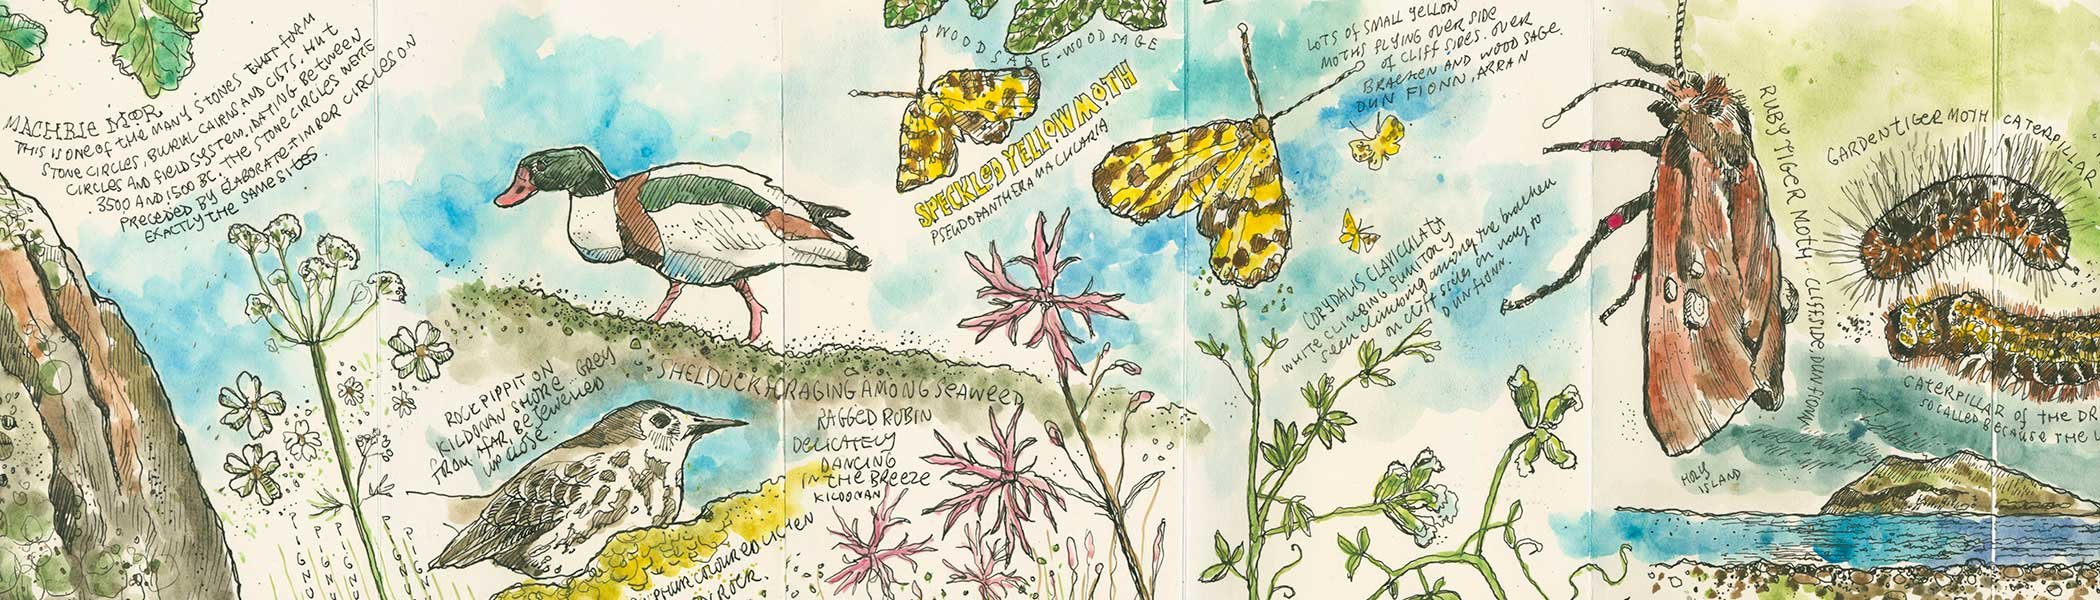 MACHRIE MOOR
THIS IS ONE OF THE MANY STONES THAT FORM
STONE CIRCLES, BURIAL CAIRNS AND CISTS, HUT
CIRCLES AND FIELD SYSTEM, DATING BETWEEN
3500 AND 1500 BC. THE STONE CIRCLES WERE
PRECEDED BY ELABORATE TIMBER CIRCLES ON
EXACTLY THE SAME SITES.
PIGNU
PIGNU
PIGNU
PIGNU
ROCK PIPPIT ON
KILDONAN SHORE GREY
FROM AFAR, BEJEWELLED
UP CLOSE.
SHELDUCK FORAGING AMONG SEAWEED
RAGGED ROBIN
DELICATELY
DANCING
IN THE BREEZE
KILDONAN
PHUR COLOURED LICHEN
ROCK.
WOOD SAGE - WOOD SAGE
SPECKLED YELLOW MOTH
PSEUDOPANTHERA MACULARIA
LOTS OF SMALL YELLOW
MOTHS FLYING OVER SIDE
OF CLIFF SIDES. OVER
BRACKEN AND WOOD SAGE.
DUN FIONN, ARRAN
CORYDALIS CLAVICULATA
WHITE CLIMBING FUMITORY
seen climbing among the bracken
on cliff sides on way to
DUN FIONN.
RUBY TIGER MOTH - CLIFFSIDE, DUN FIONN
GARDEN TIGER MOTH CATERPILLAR
CATERPILLAR OF THE DR
SO CALLED BECAUSE THE
HOLY
ISLAND